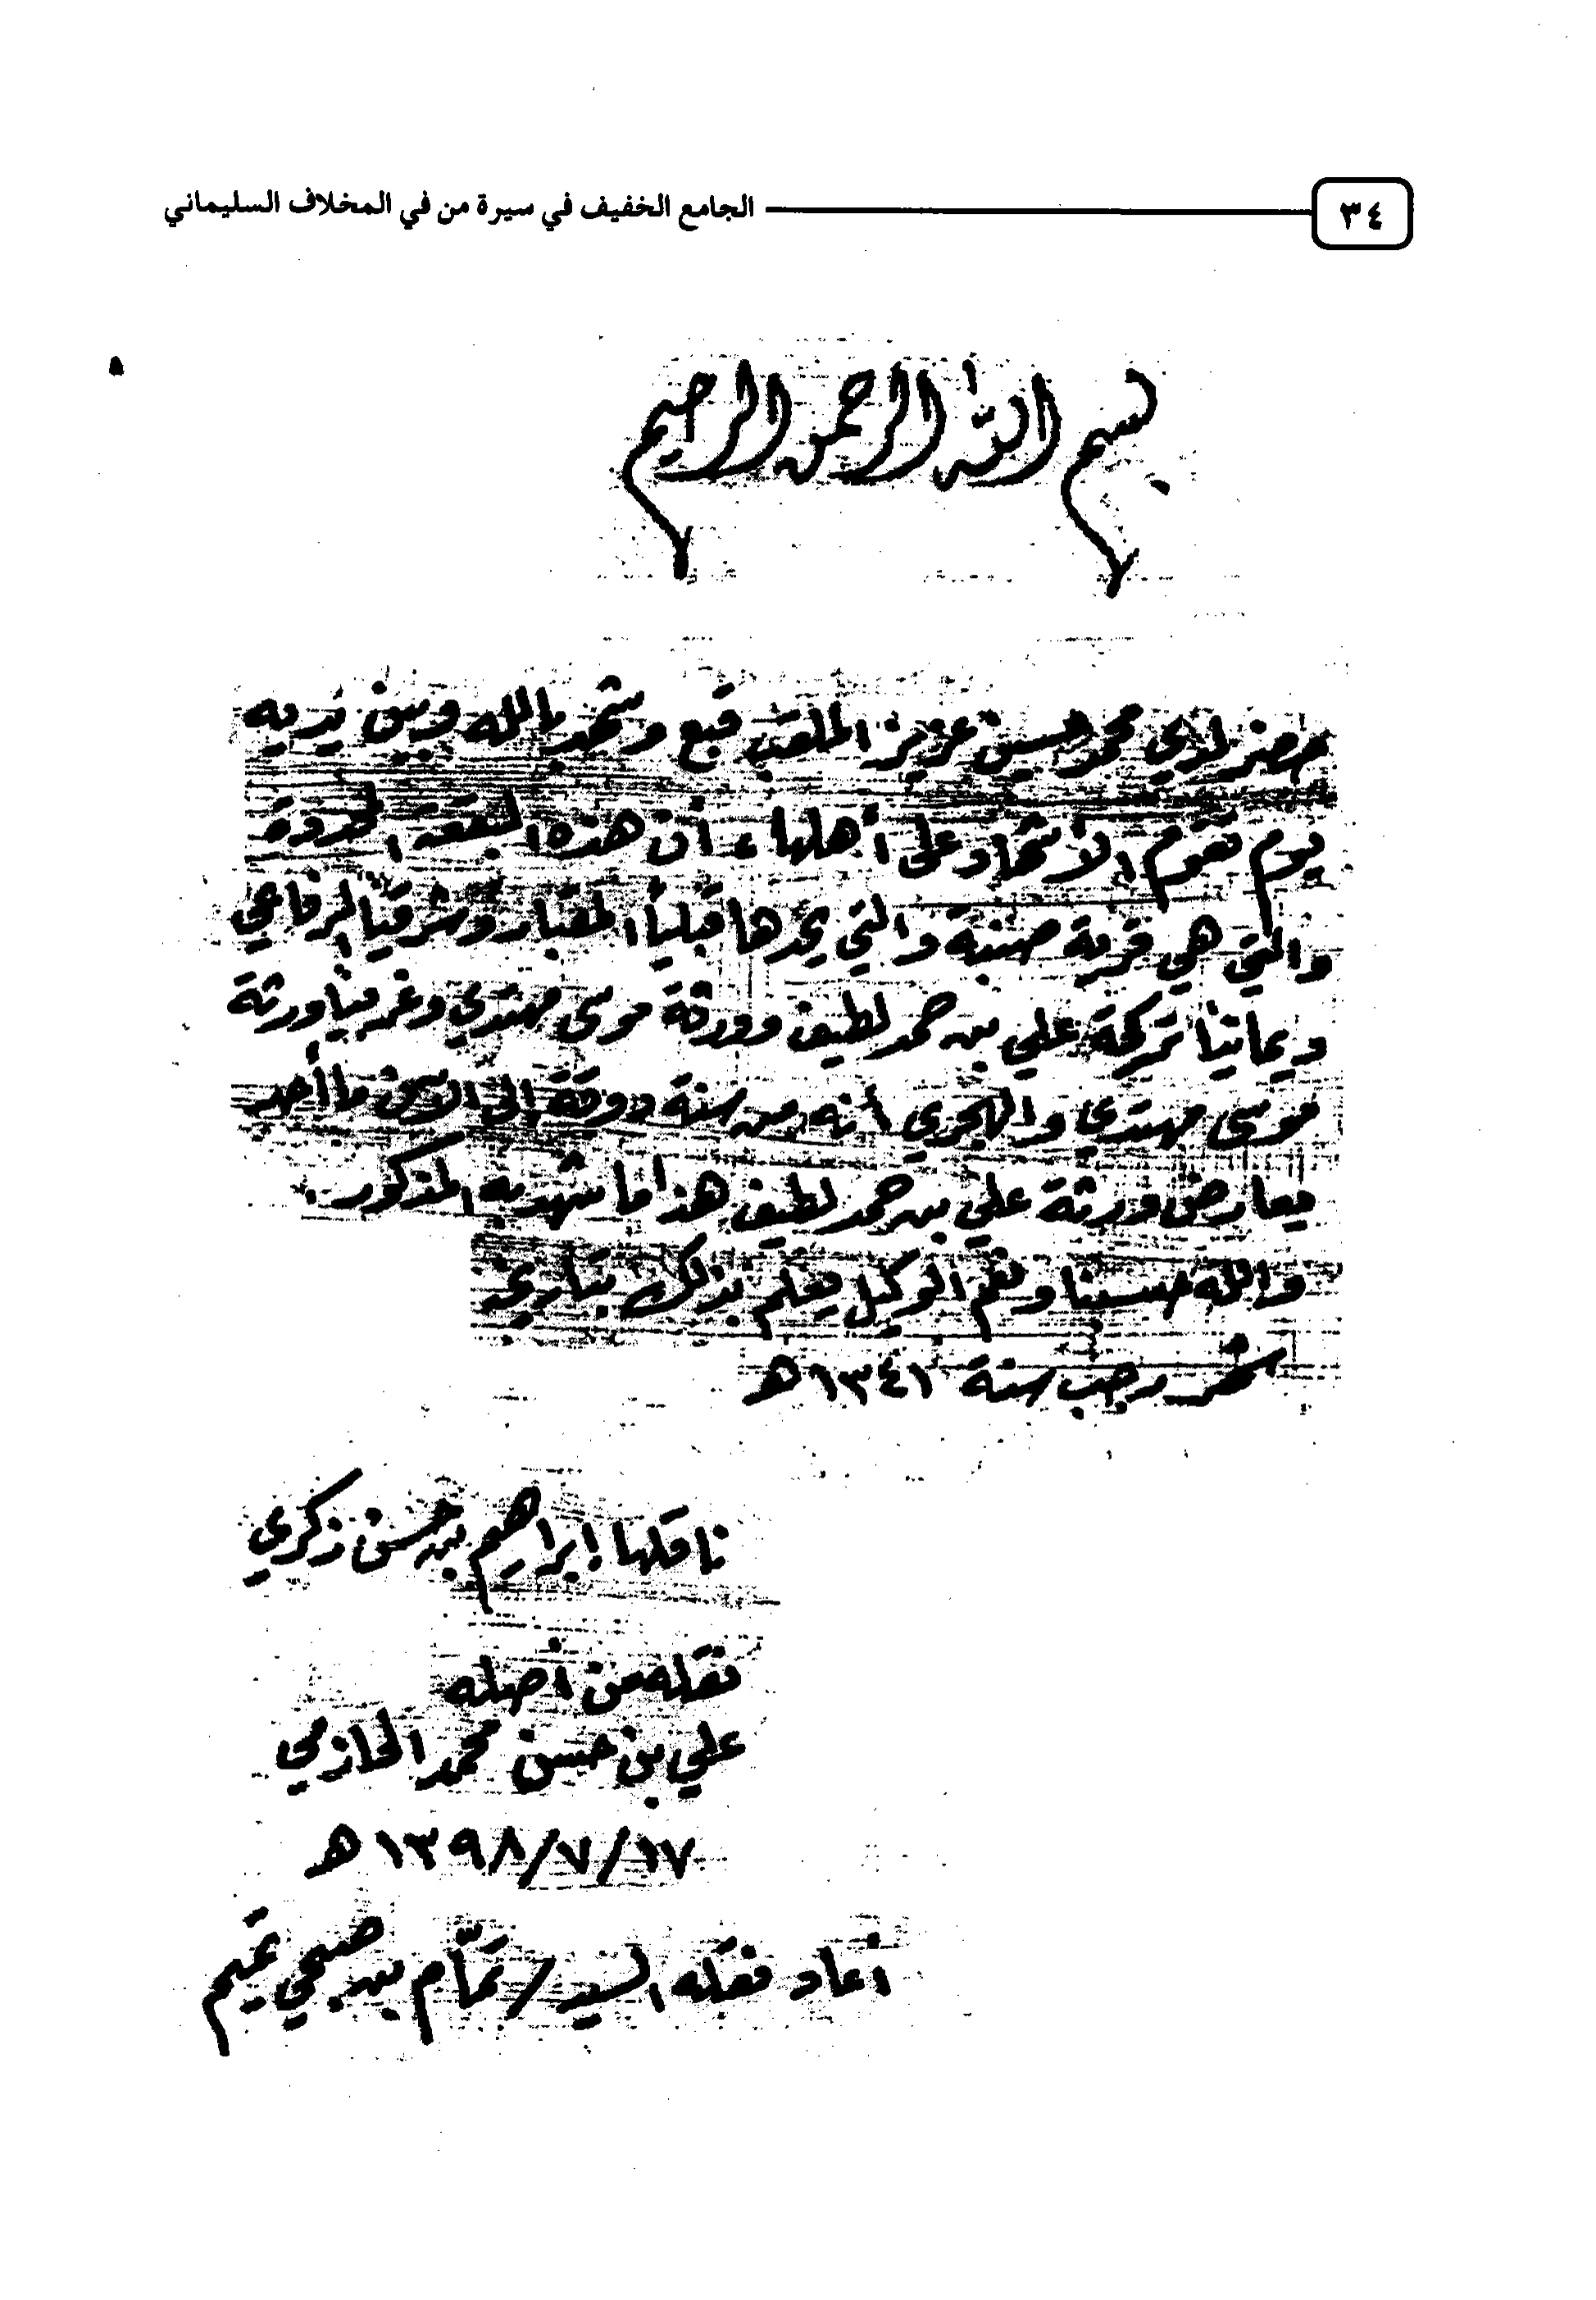 ٣٤
الجامع الخفيف في سيرة من في المخلاف السليماني
بسم الله الرحمن الرحيم
حضر لدي محمد حسين عزيز الملقب قبع وشهد بالله وبين يديه
يوم تقوم الأشهاد على أهلها، أن هذه البقعة المحدودة
والتي هي قرية صنبة والتي يحدها قبلياً المقبار وشرقياً الرفاعي
ويمانياً تركة علي بن حمد لطيف وورثة موسى مهتدي وغربياً ورثة
موسى مهتدي والهجري أنه من سنة دوقة إلى الآن ما أحد
يعارض ورثة علي بن حمد لطيف هذا ما شهد به المذكور.
والله حسبنا ونعم الوكيل يعلم بذلك بتاريخ
شهر رجب سنة ١٣٤١هـ
ناقلها إبراهيم بن حسن زكري
نقله من أصله
علي بن حسن محمد الحازمي
١٣٩٨/٧/١٧هـ
أعاد نقله السيد/ تمّام بن صبحي تميم